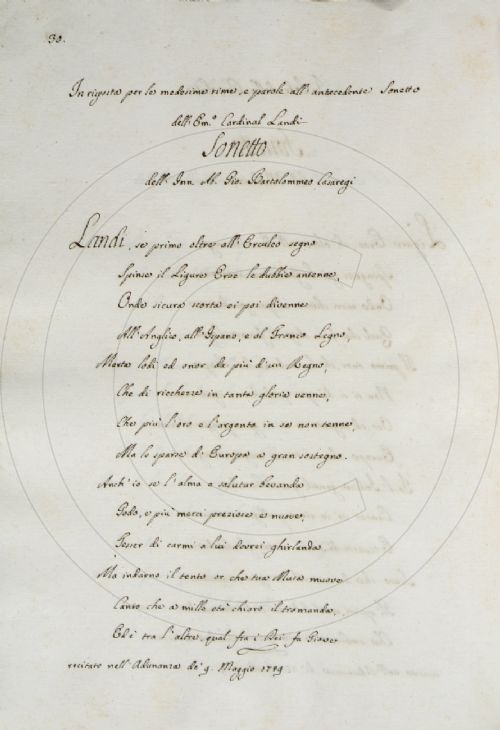 30.
In risposta per le medesime rime, e parole all' antecedente Sonetto
dell' Em.º Cardinal Landi
Sonetto
dell' Ab. Gio. Bartolommeo Casaregi
Landi, se primo oltre all' Erculeo segno
Spinse il Ligure Eroe le dubbie antenne,
Onde sicura scorta ei poi divenne
All' Anglico, all' Ispano, e al Franco Legno,
Merta lodi ed onor da più d' un Regno,
Che di ricchezze in tanta gloria venne,
Che più l' oro e l' argento in se non tenne,
Ma lo sparse d' Europa a gran sostegno.
Anch' io se l' alma a salutar bevanda
Godo, e più merci preziose e nuove,
Tesser di carmi a lui dovrei ghirlanda
Ma indarno il tento or che tua Musa muove
Canto che a mille età chiaro il tramanda,
Ed è tra l' altre, qual fra i Dei fu Giove.
recitato nell' Adunanza de' 9. Maggio 1749